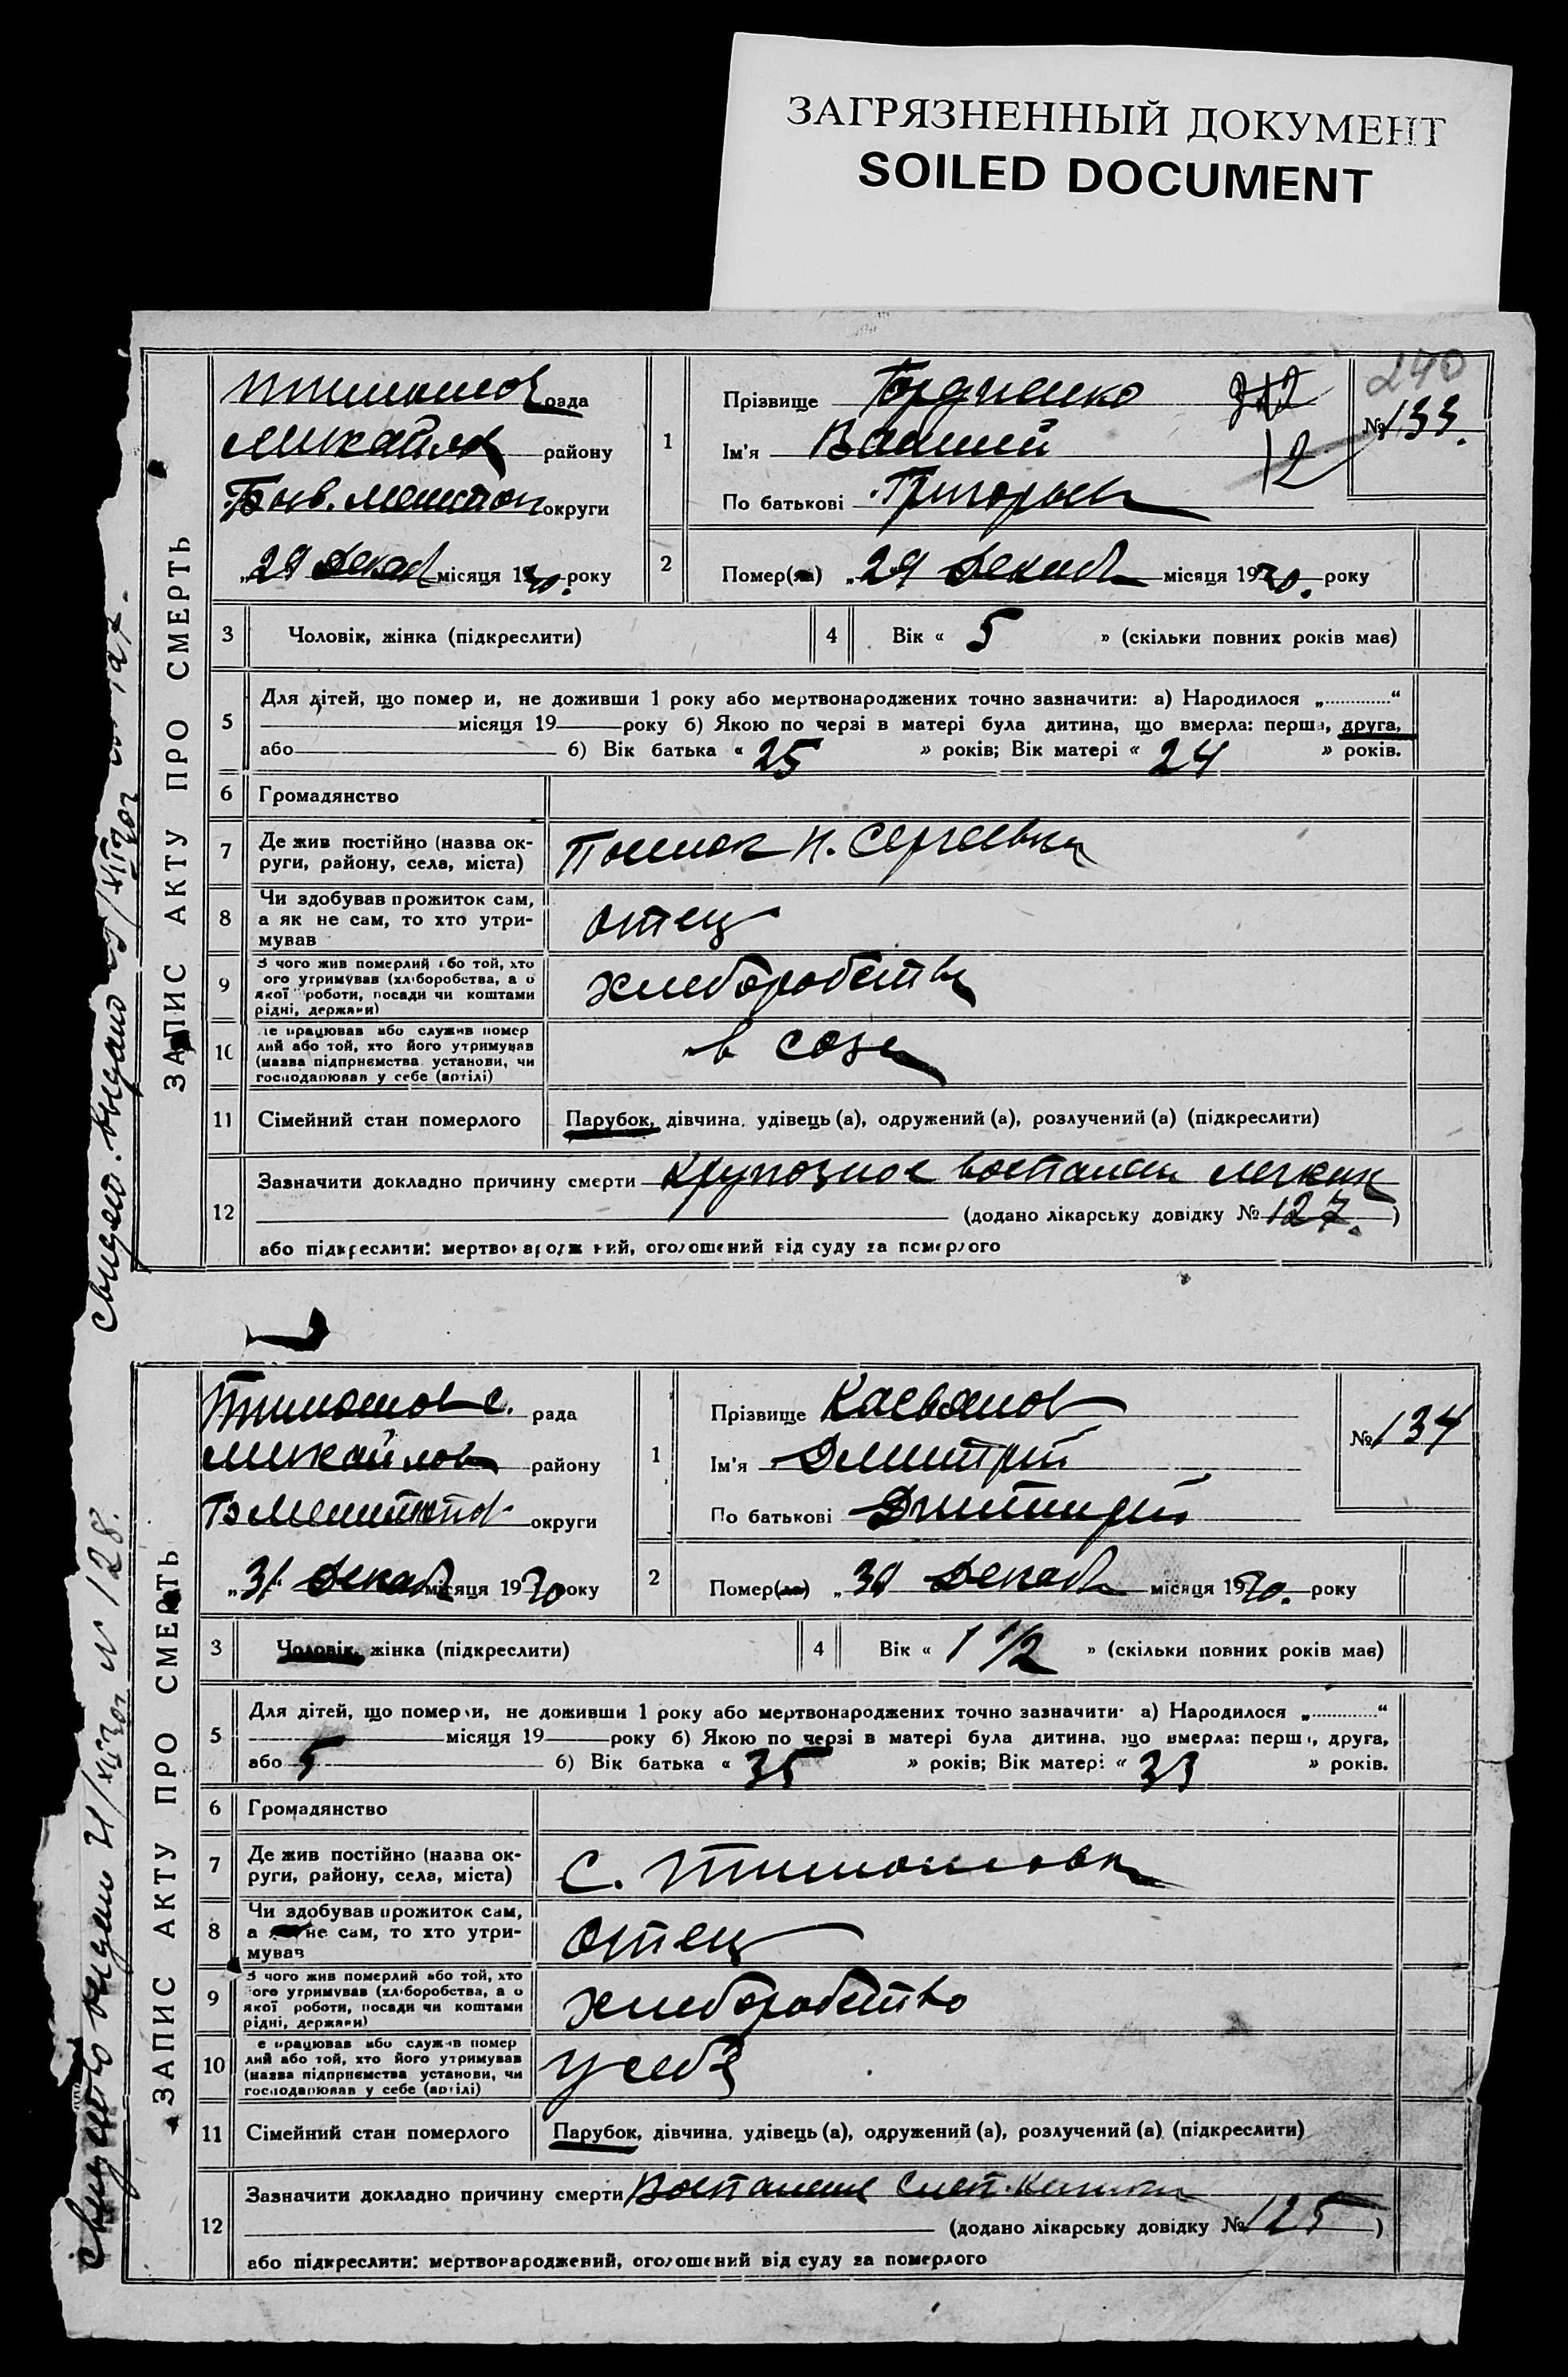 ЗАГРЯЗНЕННЫЙ ДОКУМЕНТ
SOILED DOCUMENT
240
ЗАПИС АКТУ ПРО СМЕРТЬ
Тимошов рада
Михайлов району
Був. Мелитоп округи
„29 Декаб місяця 1930. року
1
Прізвище Гордиенко
Ім'я Василий
По батькові Григорьев
312
12
№ 133.
2
Помер(ла) „29 Декаб місяця 1930. року
3 Чоловік, жінка (підкреслити)
4 Вік « 5 » (скільки повних років має)
5 Для дітей, що помер и, не доживши 1 року або мертвонароджених точно зазначити: а) Народилося „............“
місяця 19 року б) Якою по черзі в матері була дитина, що вмерла: перша, друга,
або б) Вік батька « 25 » років; Вік матері « 24 » років.
6 Громадянство
7 Де жив постійно (назва ок-
руги, району, села, міста)
Н. Сергеевка
8 Чи здобував прожиток сам,
а як не сам, то хто утри-
мував
отец
9 З чого жив померлий або той, хто
ого утримував (хліборобства, а о
якої роботи, посади чи коштами
рідні, держави)
хлеборобство
10 де працював або служив помер
лий або той, хто його утримував
(назва підприємства, установи, чи
господарював у себе (артілі)
в созе
11 Сімейний стан померлого Парубок, дівчина, удівець (а), одружений (а), розлучений (а) (підкреслити)
12 Зазначити докладно причину смерти Крупозное воспален легких
(додано лікарську довідку № 127. )
або підкреслити: мертвонароджений, оголошений від суду за померлого
ЗАПИС АКТУ ПРО СМЕРТЬ
Тимошов с. рада
Михайлов району
Б Мелитоп округи
„31“ Декаб місяця 1930 року
1
Прізвище Касьянов
Ім'я Дмитрий
По батькові Дмитриев
№ 134
2
Помер(ла) „30 Декаб місяця 1930. року
3 Чоловік, жінка (підкреслити)
4 Вік « 1 1/2 » (скільки повних років має)
5 Для дітей, що померли, не доживши 1 року або мертвонароджених точно зазначити: а) Народилося „............“
місяця 19 року б) Якою по черзі в матері була дитина, що вмерла: перша, друга,
або 5 б) Вік батька « 35 » років; Вік матері « 33 » років.
6 Громадянство
7 Де жив постійно (назва ок-
руги, району, села, міста)
С. Тимошовка
8 Чи здобував прожиток сам,
а не сам, то хто утри-
мував
отец
9 З чого жив померлий або той, хто
ого утримував (хліборобства, а о
якої роботи, посади чи коштами
рідні, держави)
хлеборобство
10 е працював або служив помер
лий або той, хто його утримував
(назва підприємства, установи, чи
господарював у себе (артілі)
у себя
11 Сімейний стан померлого Парубок, дівчина, удівець (а), одружений (а), розлучений (а) (підкреслити)
12 Зазначити докладно причину смерти Воспаление
(додано лікарську довідку № 125 )
або підкреслити: мертвонароджений, оголошений від суду за померлого